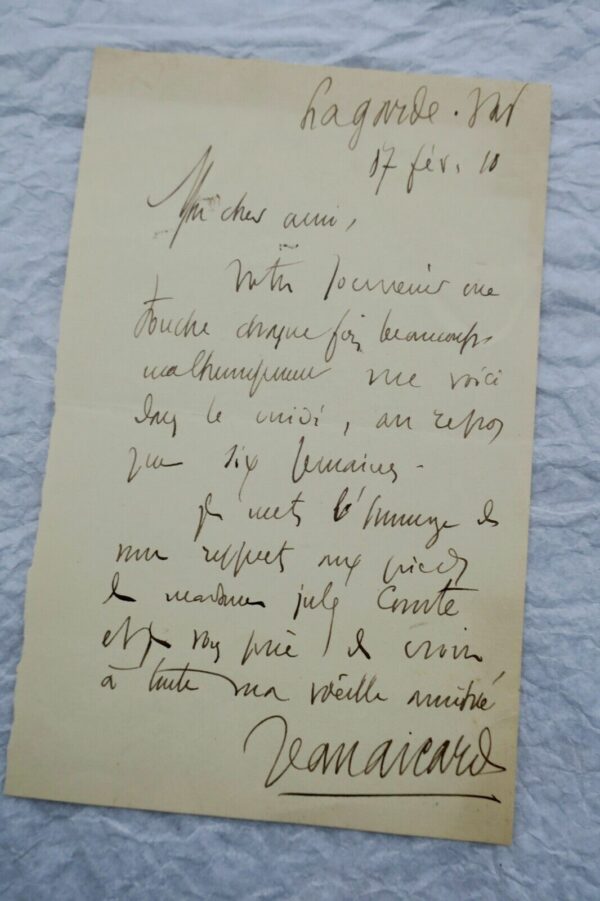 Lagarde. Var
17 fév. 10
Mon cher ami,
Votre souvenir me
touche chaque fois beaucoup.
malheureusement me voici
dans le midi, au repos
pour six semaines.
Je mets l'hommage de
mon respect aux pieds
de madame Jules Comte
et je vous prie de croire
à toute ma vieille amitié
Jean Aicard